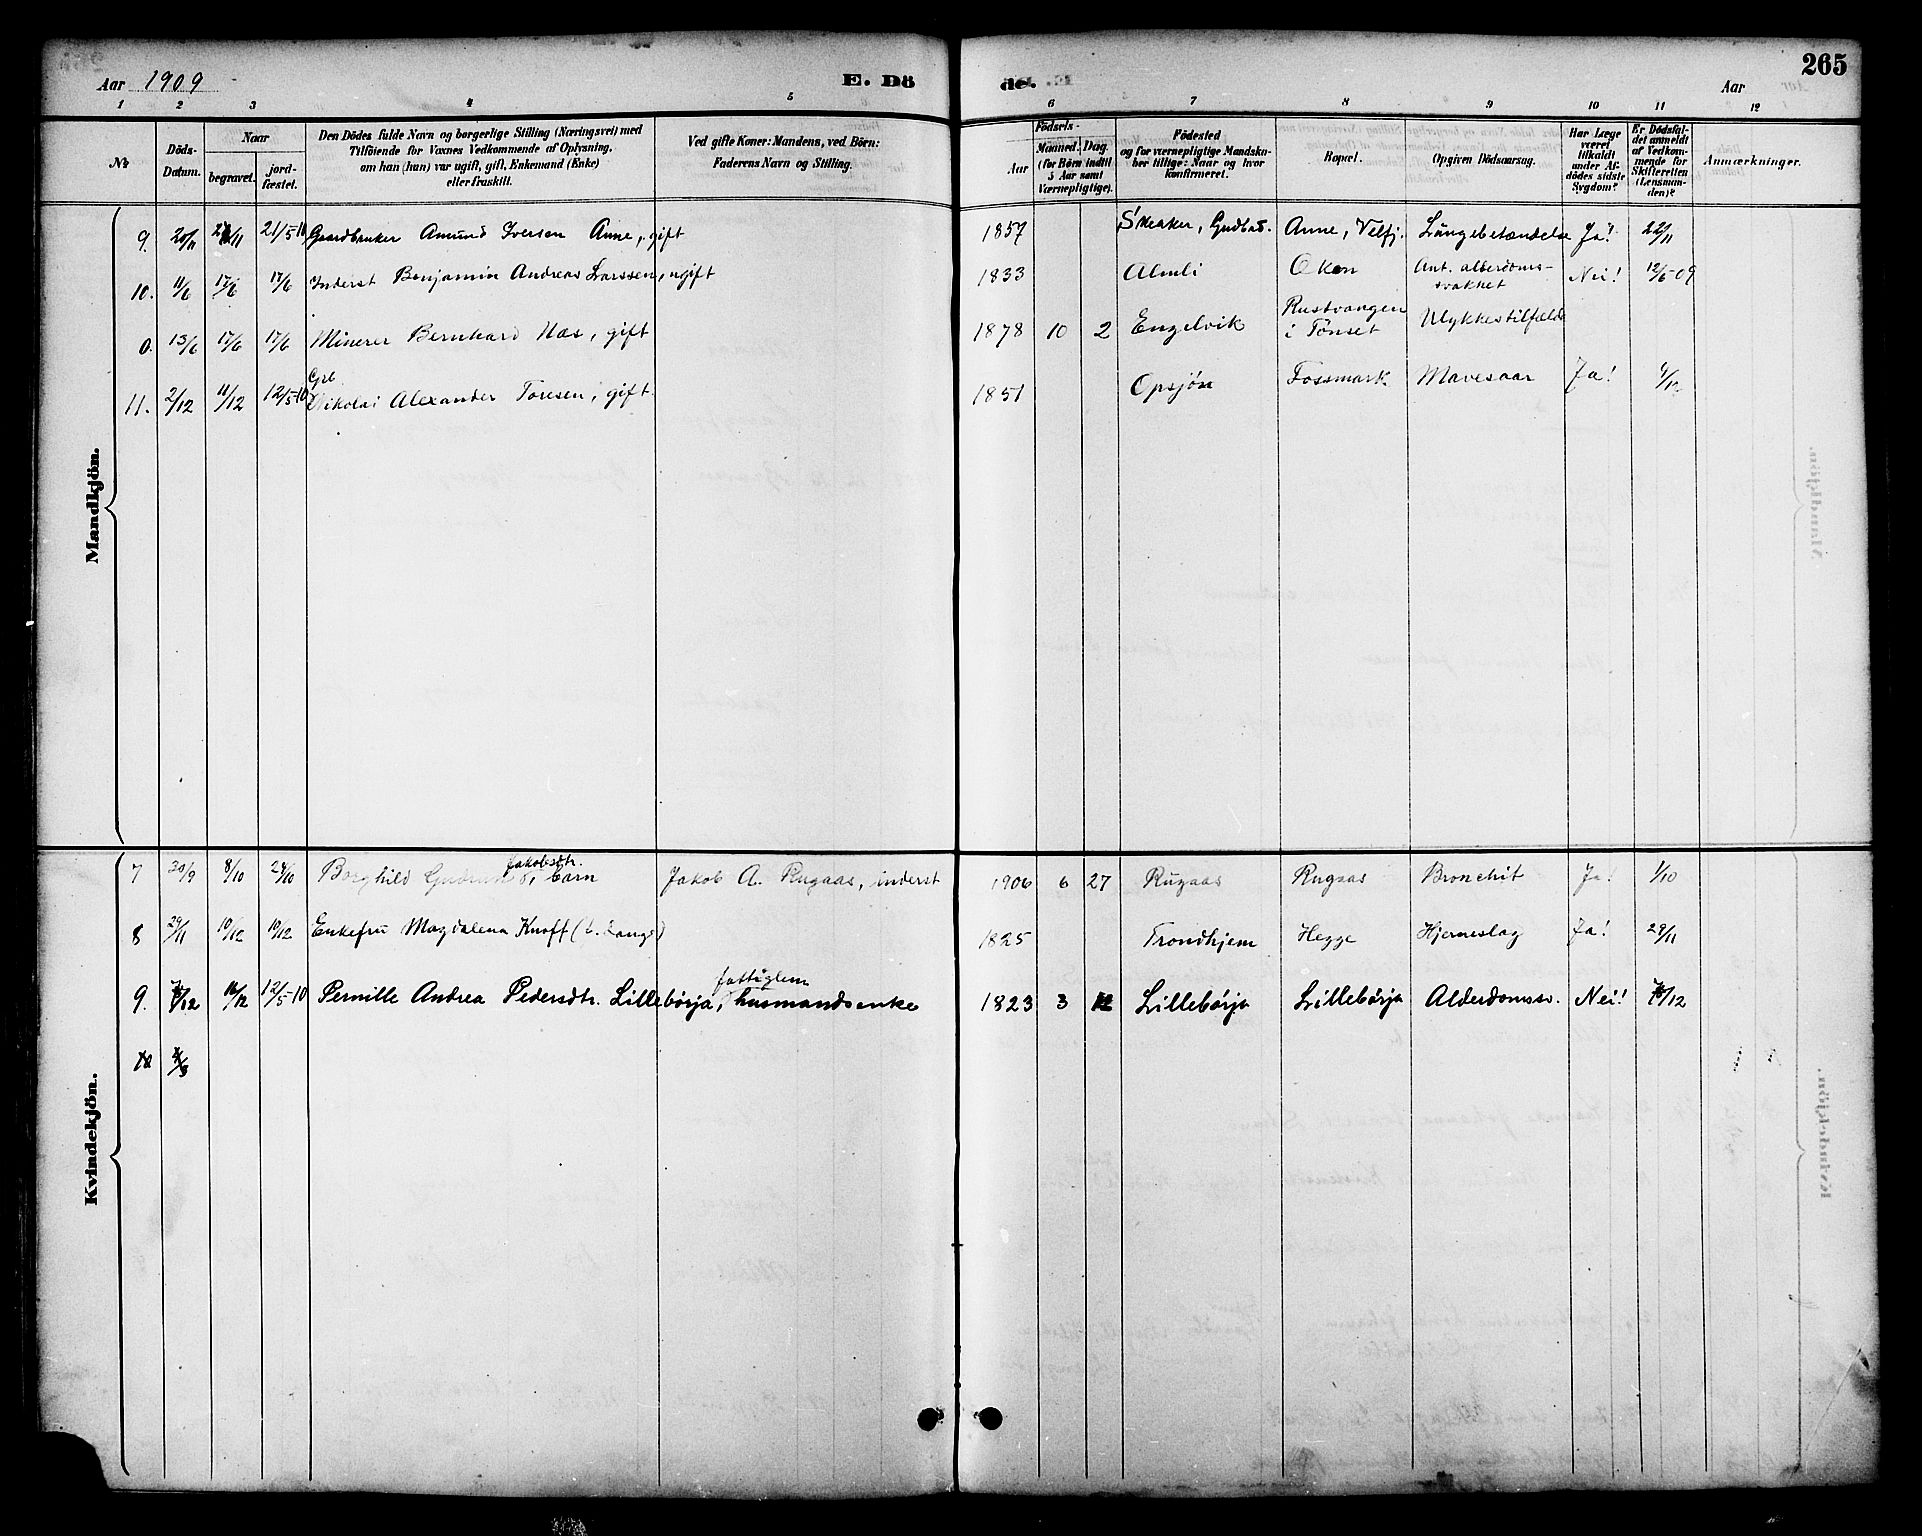 Aar 1909
E. Dö
de.
Aar
265
1 2 3 4 5 6 7 8 9 10 11 12
No
Döds-Datum.
Naar
begravet.
jord-fæstet.
Den Dödes fulde Navn og borgerlige Stilling (Næringsvei) med
Tilföiende for Voxnes Vedkommende af Oplysning,
om han (hun) var ugift, gift, Enkemand (Enke)
eller fraskilt.
Ved gifte Koner: Mandens, ved Börn:
Faderens Navn og Stilling.
Födsels-
Aar
Maaned. Dag.
(for Börn indtil
5 Aar samt
Værnepligtige).
Födested
og for værnepligtige Mandskaber tillige: Naar og hvor konfirmeret.
Bopæl.
Opgiven Dödsaarsag.
Har Læge været tilkaldt under Afdödes sidste Sygdom?
Er Dödsfaldet anmeldt af Vedkommende for Skifteretten (Lensmanden)?
Anmærkninger.
Mandkjön.
9. 20/11 /11 21/5-10 Gaardbruker Amund Iversen Anne, gift 1857 Skeaker, Gudbrd. Anne, Velfj. Lungebetændelse Ja! 22/11
10. 11/6 17/6 17/6 Inderst Benjamin Andreas Larssen, ugift 1833 Almli Oken Ant. alderdoms-svakhet Nei! 12/6-09
0. 13/6 17/6 17/6 Minerer Bernhard Næs, gift 1878 10 2 Engelvik Rustvangen i Tønset Ulykkestilfælde
11. 2/12 11/12 12/5-10 Grb. Nikolai Alexander Toresen, gift. 1851 Opsjøn Fossmark Mavesaar Ja! /12
Kvindekjön.
7 30/9 8/10 24/10 Borghild Gudrun Jakobsdtr., barn Jakob A. Rugaas, inderst 1906 6 27 Rugaas Rugaas Bronchit Ja! 1/10
8 29/11 10/12 10/12 Enkefru Magdalena Knoff (f. Lange) 1825 Trondhjem Hegge Hjerneslag Ja! 29/11
9. /12 16/12 12/5-10 Pernille Andrea Pedersdtr. Lillebørja, fattiglem husmandsenke 1823 3 12 Lillebørja Lillebørja Alderdomssv. Nei! /12
10